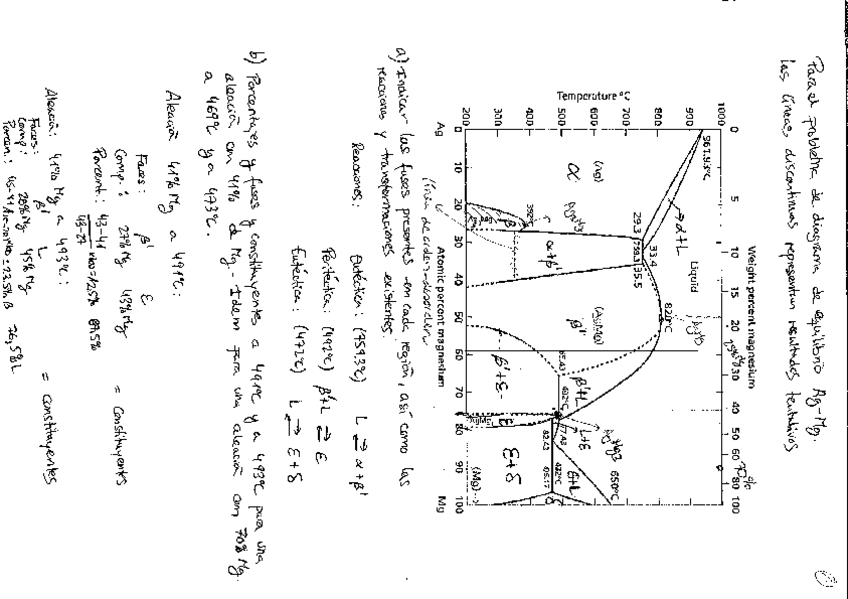 Para el problema de diagrama de equilibrio Ag-Mg.
las líneas discontinuas representan resultados tentativos
Weight percent magnesium
0 5 10 15 20 30 40 50 60 70% 80 100
1000
900
800
700
600
500
400
300
200
Temperature °C
961.93°C
α+L
Liquid
820°C
AgMg
33.4
29.3
759.3
35.5
α
(Ag)
Ag3Mg
392°C
β
α+β'
(AgMg)
β'
65.43
β'+L
492°C
AgMg3
L+ε
77.43
82.43
472°C
95.17
650°C
δ+L
δ
β'+ε
ε
ε+δ
(Mg)
0 10 20 30 40 50 60 70 80 90 100
Ag
Atomic percent magnesium
Mg
(línea de orden-desorden)
a) Indicar las fases presentes en cada región, así como las
reacciones y transformaciones existentes.
Reacciones:
Eutéctica: (759.3°C) L ⇄ α+β'
Peritéctica: (492°C) β'+L ⇄ ε
Eutéctica: (472°C) L ⇄ ε+δ
b) Porcentajes y fases y constituyentes a 491°C y a 493°C para una
aleación con 41% de Mg. Idem para una aleación con 70% Mg.
a 469°C y a 473°C.
Aleación 41% Mg a 491°C:
Fases: β' ε
Comp.: 27% Mg 43% Mg = constituyentes
Porcent: 43-41/43-27 x100=12.5% 87.5%
Aleación: 41% Mg a 493°C:
Fases: β' L
Comp: 28% Mg 45% Mg = constituyentes
Porcen.: 45-41/45-28 x100=23.5% β 76,5% L